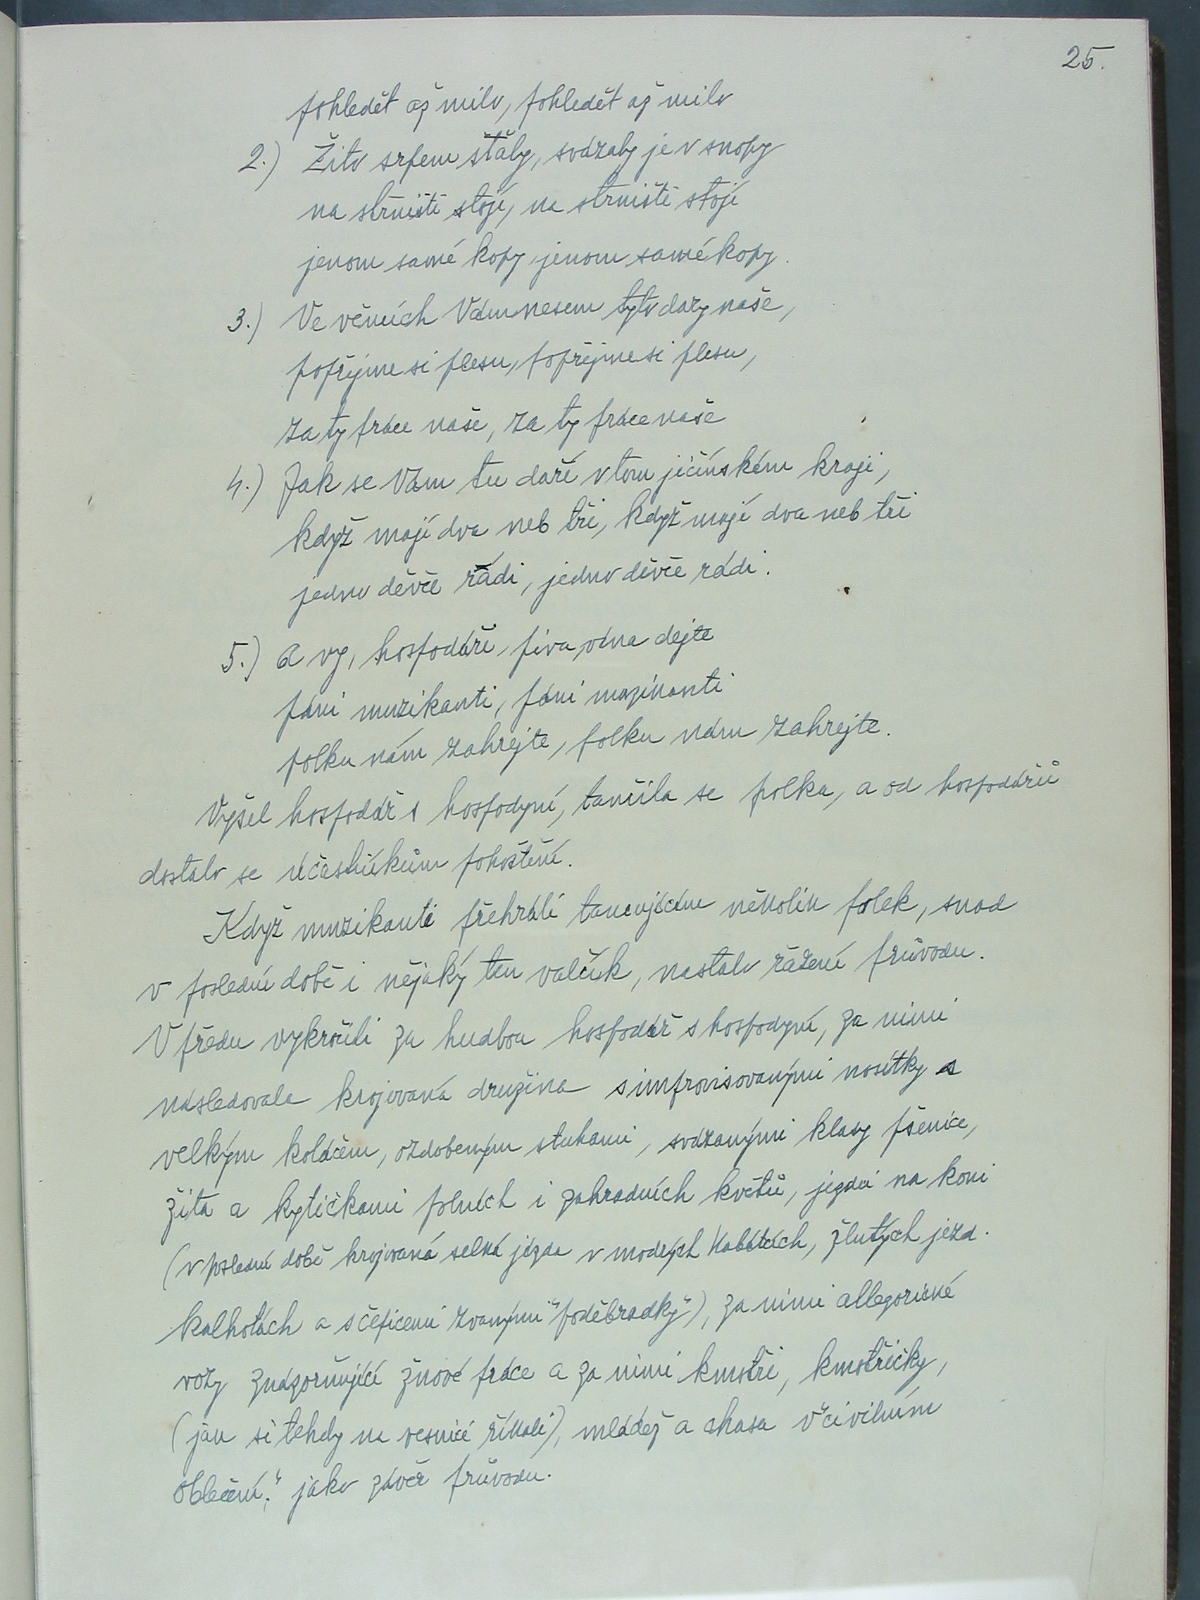 25.
pohledět až milo, pohledět až milo
2.) Žito srpem sťaly, svázaly je v snopy
na strništi stojí, na strništi stojí
jenom samé kopy jenom samé kopy.
3.) Ve věncích Vám nesem tyto dary naše,
popřejme si plesu, popřejme si plesu,
za ty práce naše, za ty práce naše
4.) Jak se Vám tu daří v tom jičínském kraji,
když mají dva neb tři, když mají dva neb tři
jedno děvče rádi, jedno děvče rádi.
5.) A vy, hospodáři, piva, vína dejte
páni muzikanti, páni muzikanti
polku nám zahrejte, polku nám zahrejte.
Vyšel hospodář s hospodyní, tančila se polka, a od hospodářů
dostalo se účastníkům pohoštění.
Když muzikanti přehráli tancujícím několik polek, snad
v poslední době i nějaký ten valčík, nastalo řazení průvodu.
V předu vykročili za hudbou hospodář s hospodyní, za nimi
následovala krojovaná družina s improvisovanými nosítky s
velkým koláčem, ozdobeným stuhami, svázanými klasy pšenice,
žita a kytičkami polních i zahradních květů, jízdní na koni
(v poslední době krojovaná selská jízda v modrých kabátcích, žlutých jezd.
kalhotách a s čepicemi zvanými "poděbradky"), za nimi allegorické
vozy znázorňující žňové práce a za nimi kmotři, kmotřičky,
(jak si tehdy na vesnici říkali), mládež a chasa v "civilním
oblečení," jako závěr průvodu.